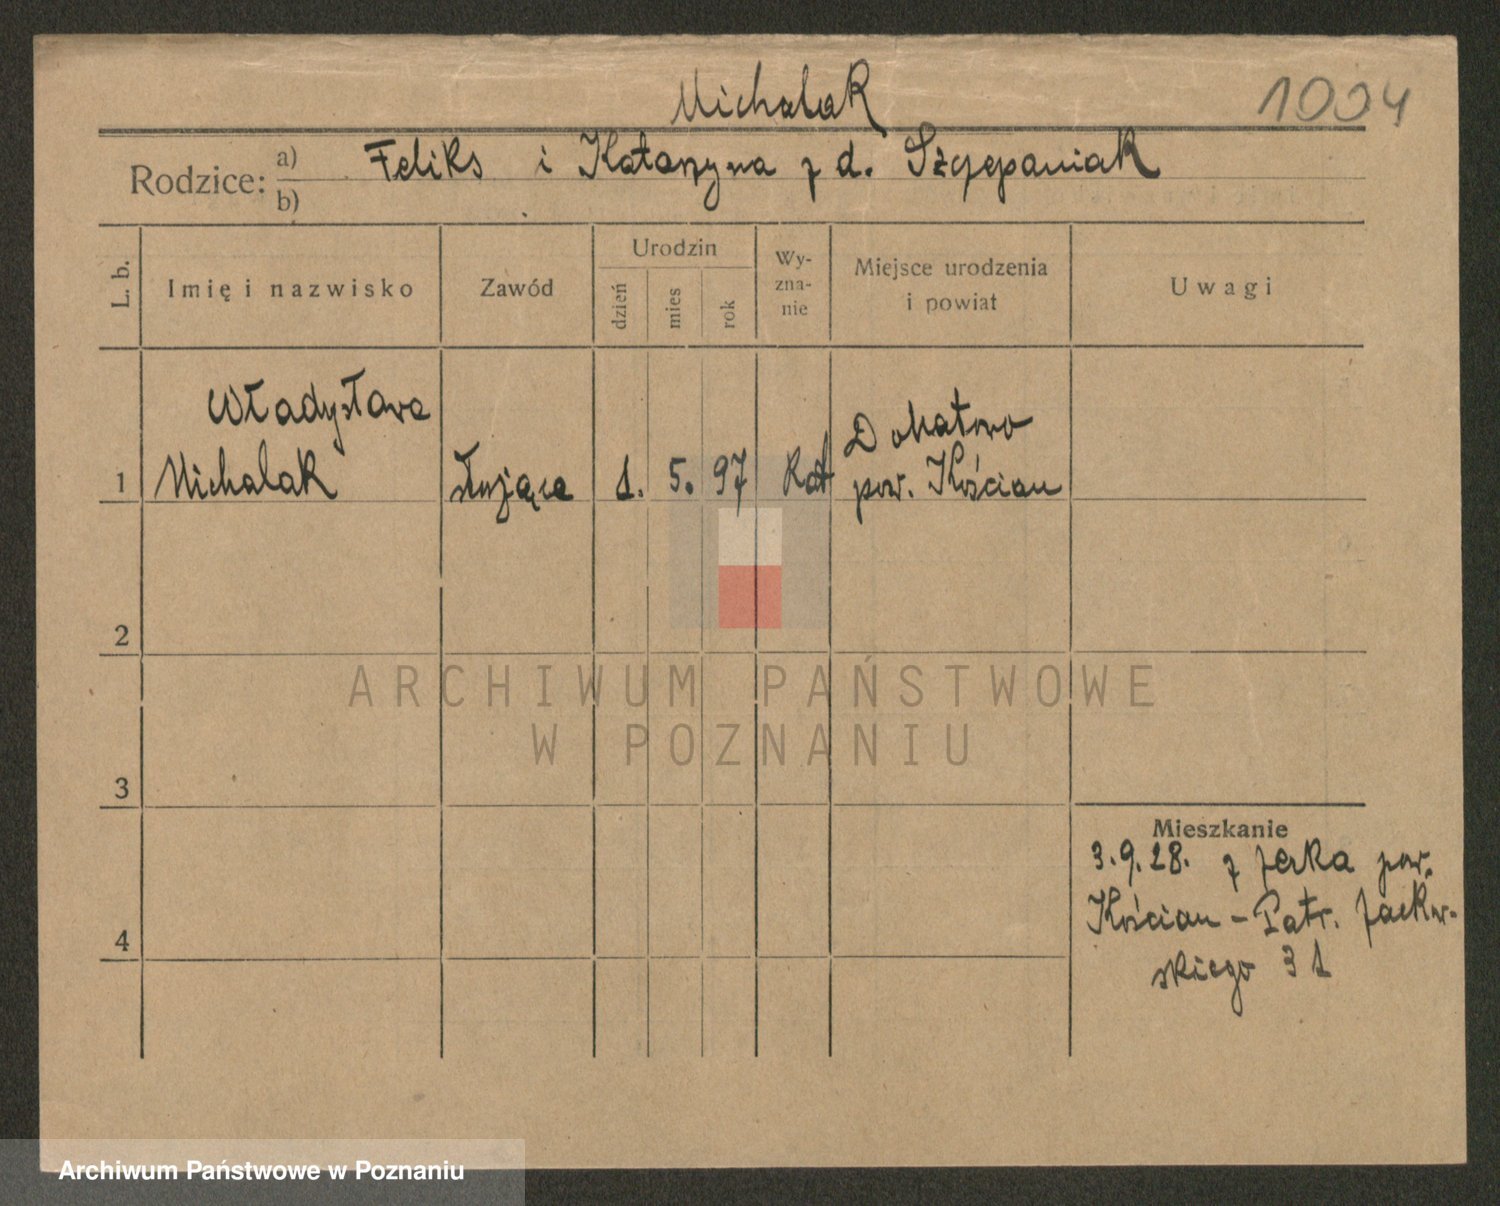 Michalak
1004
Rodzice: a) Feliks i Katarzyna z d. Szczepaniak
b)
L. b. Imię i nazwisko Zawód Urodzin dzień mies rok Wy-zna-nie Miejsce urodzenia i powiat Uwagi
Władysława
1 Michalak służąca 1. 5. 97 Kat
pow. Kościan
2
ARCHIWUM PAŃSTWOWE
W POZNANIU
3
Mieszkanie
3.9.28. z Jerka pow.
4 Kościan - Patr. Jackow-
skiego 31
Archiwum Państwowe w Poznaniu